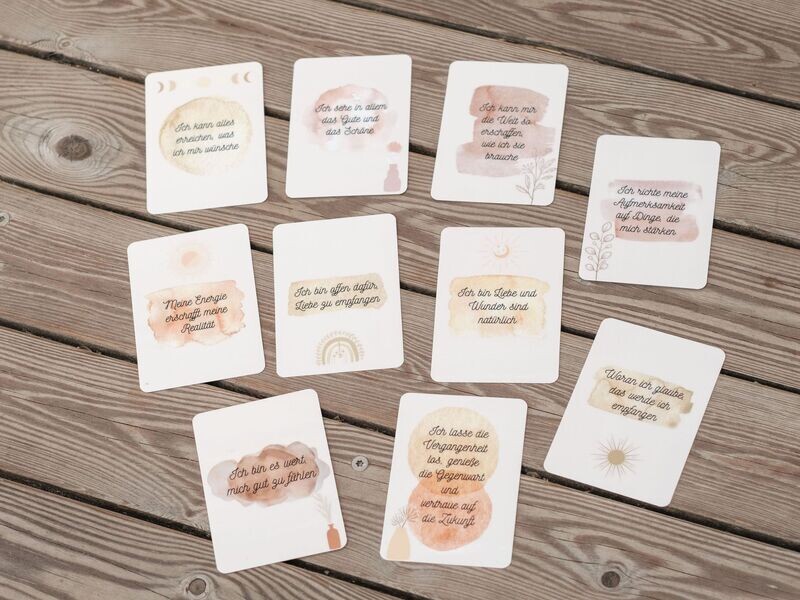 Ich kann alles
erreichen, was
ich mir wünsche
Ich sehe in allem
das Gute und
das Schöne
Ich kann mir
die Welt so
erschaffen,
wie ich sie
brauche
Ich richte meine
Aufmerksamkeit
auf Dinge, die
mich stärken
Meine Energie
erschafft meine
Realität
Ich bin offen dafür,
Liebe zu empfangen
Ich bin Liebe und
Wunder sind
natürlich
Woran ich glaube,
das werde ich
empfangen
Ich bin es wert,
mich gut zu fühlen
Ich lasse die
Vergangenheit
los, genieße
die Gegenwart
und
vertraue auf
die Zukunft